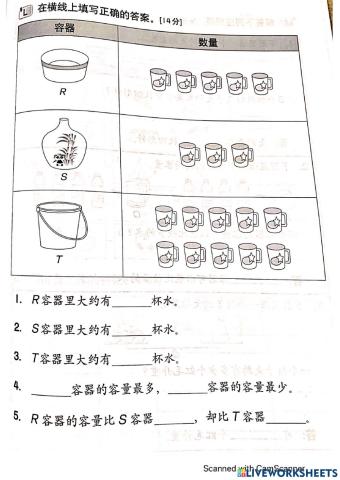 在横线上填写正确的答案。[14分]
容器 数量
R
S
T
1. R容器里大约有______杯水。
2. S容器里大约有______杯水。
3. T容器里大约有______杯水。
4. ______容器的容量最多，______容器的容量最少。
5. R容器的容量比S容器______，却比T容器______。
Scanned with CamScanner
LIVEWORKSHEETS